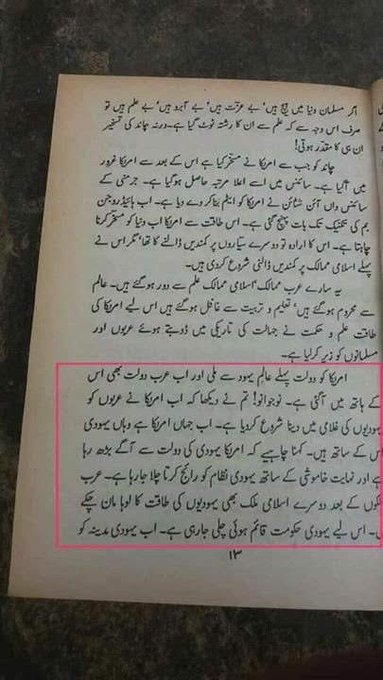 اگر مسلمان دنیا میں ہیچ ہیں' بے عزت ہیں' بے آبرو ہیں' بے علم ہیں تو
صرف اس وجہ سے کہ علم سے ان کا رشتہ ٹوٹ گیا ہے۔ ورنہ چاند کی تسخیر
ان ہی کا مقدر ہوتی!
چاند کو جب سے امریکا نے مسخر کیا ہے اس کے بعد سے امریکا غرور
میں آگیا ہے۔ سائنس میں اسے اعلا مرتبہ حاصل ہوگیا ہے۔ جرمنی کے
سائنس داں آئن سٹائن نے امریکا کو ایٹم بنا کر دے دیا ہے۔ اب ہائیڈروجن
بم کی تکنیک تک بات پہنچ گئی ہے۔ اس طاقت سے امریکا اب دنیا کو مسخر کرنا
چاہتا ہے۔ اس کا ارادہ تو دوسرے سیاروں پر کمندیں ڈالنے کا تھا' مگر اس نے
پہلے اسلامی ممالک پر کمندیں ڈالنی شروع کردی ہیں۔
یہ سارے عرب ممالک' اسلامی ممالک علم سے دور ہوگئے ہیں۔ عالم
سے محروم ہوگئے ہیں' تعلیم و تربیت سے غافل ہوگئے ہیں اس لیے امریکا کی
طاقت علم و حکمت نے جہالت کی تاریکی میں ڈوبتے ہوئے عربوں اور
مسلمانوں کو زیر کرلیا ہے۔
امریکا کو دولت پہلے عالم یہود سے ملی اور اب عرب دولت بھی اس
کے ہاتھ میں آگئی ہے۔ نوجوانو! تم نے دیکھا کہ اب امریکا نے عربوں کو
یہودیوں کی غلامی میں دینا شروع کردیا ہے۔ اب جہاں امریکا ہے وہاں یہودی
اس کے ساتھ ہیں۔ کہنا چاہیے کہ امریکا یہودی کی دولت سے آگے بڑھ رہا
ہے اور نہایت خاموشی کے ساتھ یہودی نظام کو رائج کرتا چلا جارہا ہے۔ عرب
ملکوں کے بعد دوسرے اسلامی ملک بھی یہودیوں کی طاقت کا لوہا مان چکے
ہیں۔ اس لیے یہودی حکومت قائم ہوئی چلی جارہی ہے۔ اب یہودی مدینہ کو
۱۳